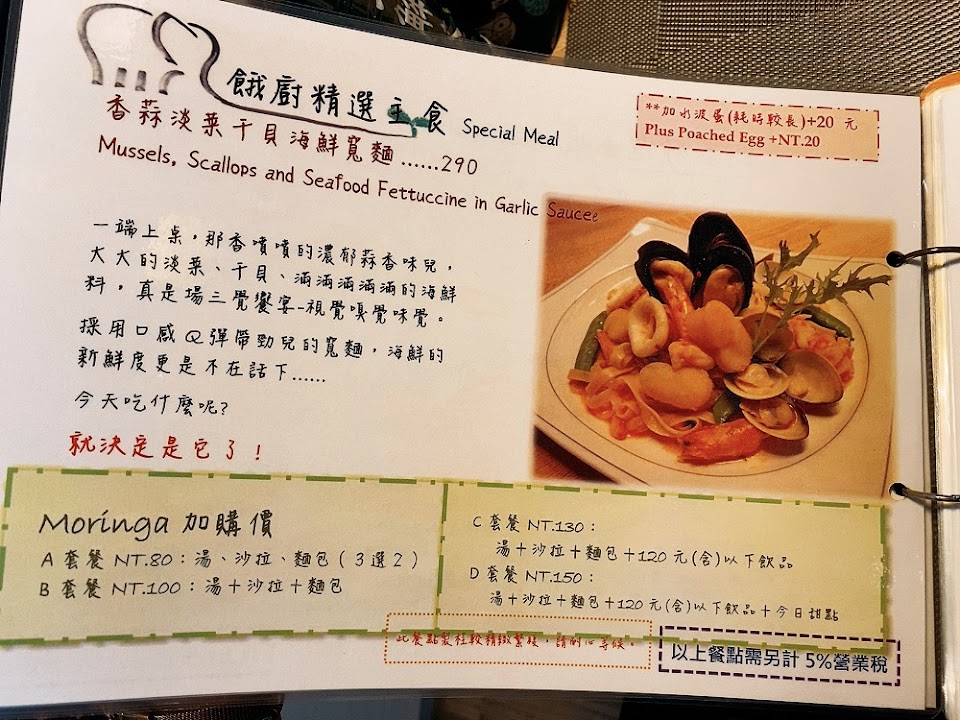 餓廚精選主食 Special Meal
**加水波蛋(耗時較長)+20 元
Plus Poached Egg +NT.20
香蒜淡菜干貝海鮮寬麵......290
Mussels, Scallops and Seafood Fettuccine in Garlic Saucee
一端上桌，那香噴噴的濃郁蒜香味兒，
大大的淡菜、干貝、滿滿滿滿滿的海鮮
料，真是場三覺饗宴-視覺嗅覺味覺。
採用口感Q彈帶勁兒的寬麵，海鮮的
新鮮度更是不在話下......
今天吃什麼呢?
就決定是它了！
Moringa 加購價
A 套餐 NT.80：湯、沙拉、麵包（3選2）
B 套餐 NT.100：湯＋沙拉＋麵包
C 套餐 NT.130：
湯＋沙拉＋麵包＋120 元(含)以下飲品
D 套餐 NT.150：
湯＋沙拉＋麵包＋120 元(含)以下飲品＋今日甜點
此餐點製程較精緻繁複，請耐心等候。
以上餐點需另計 5%營業稅